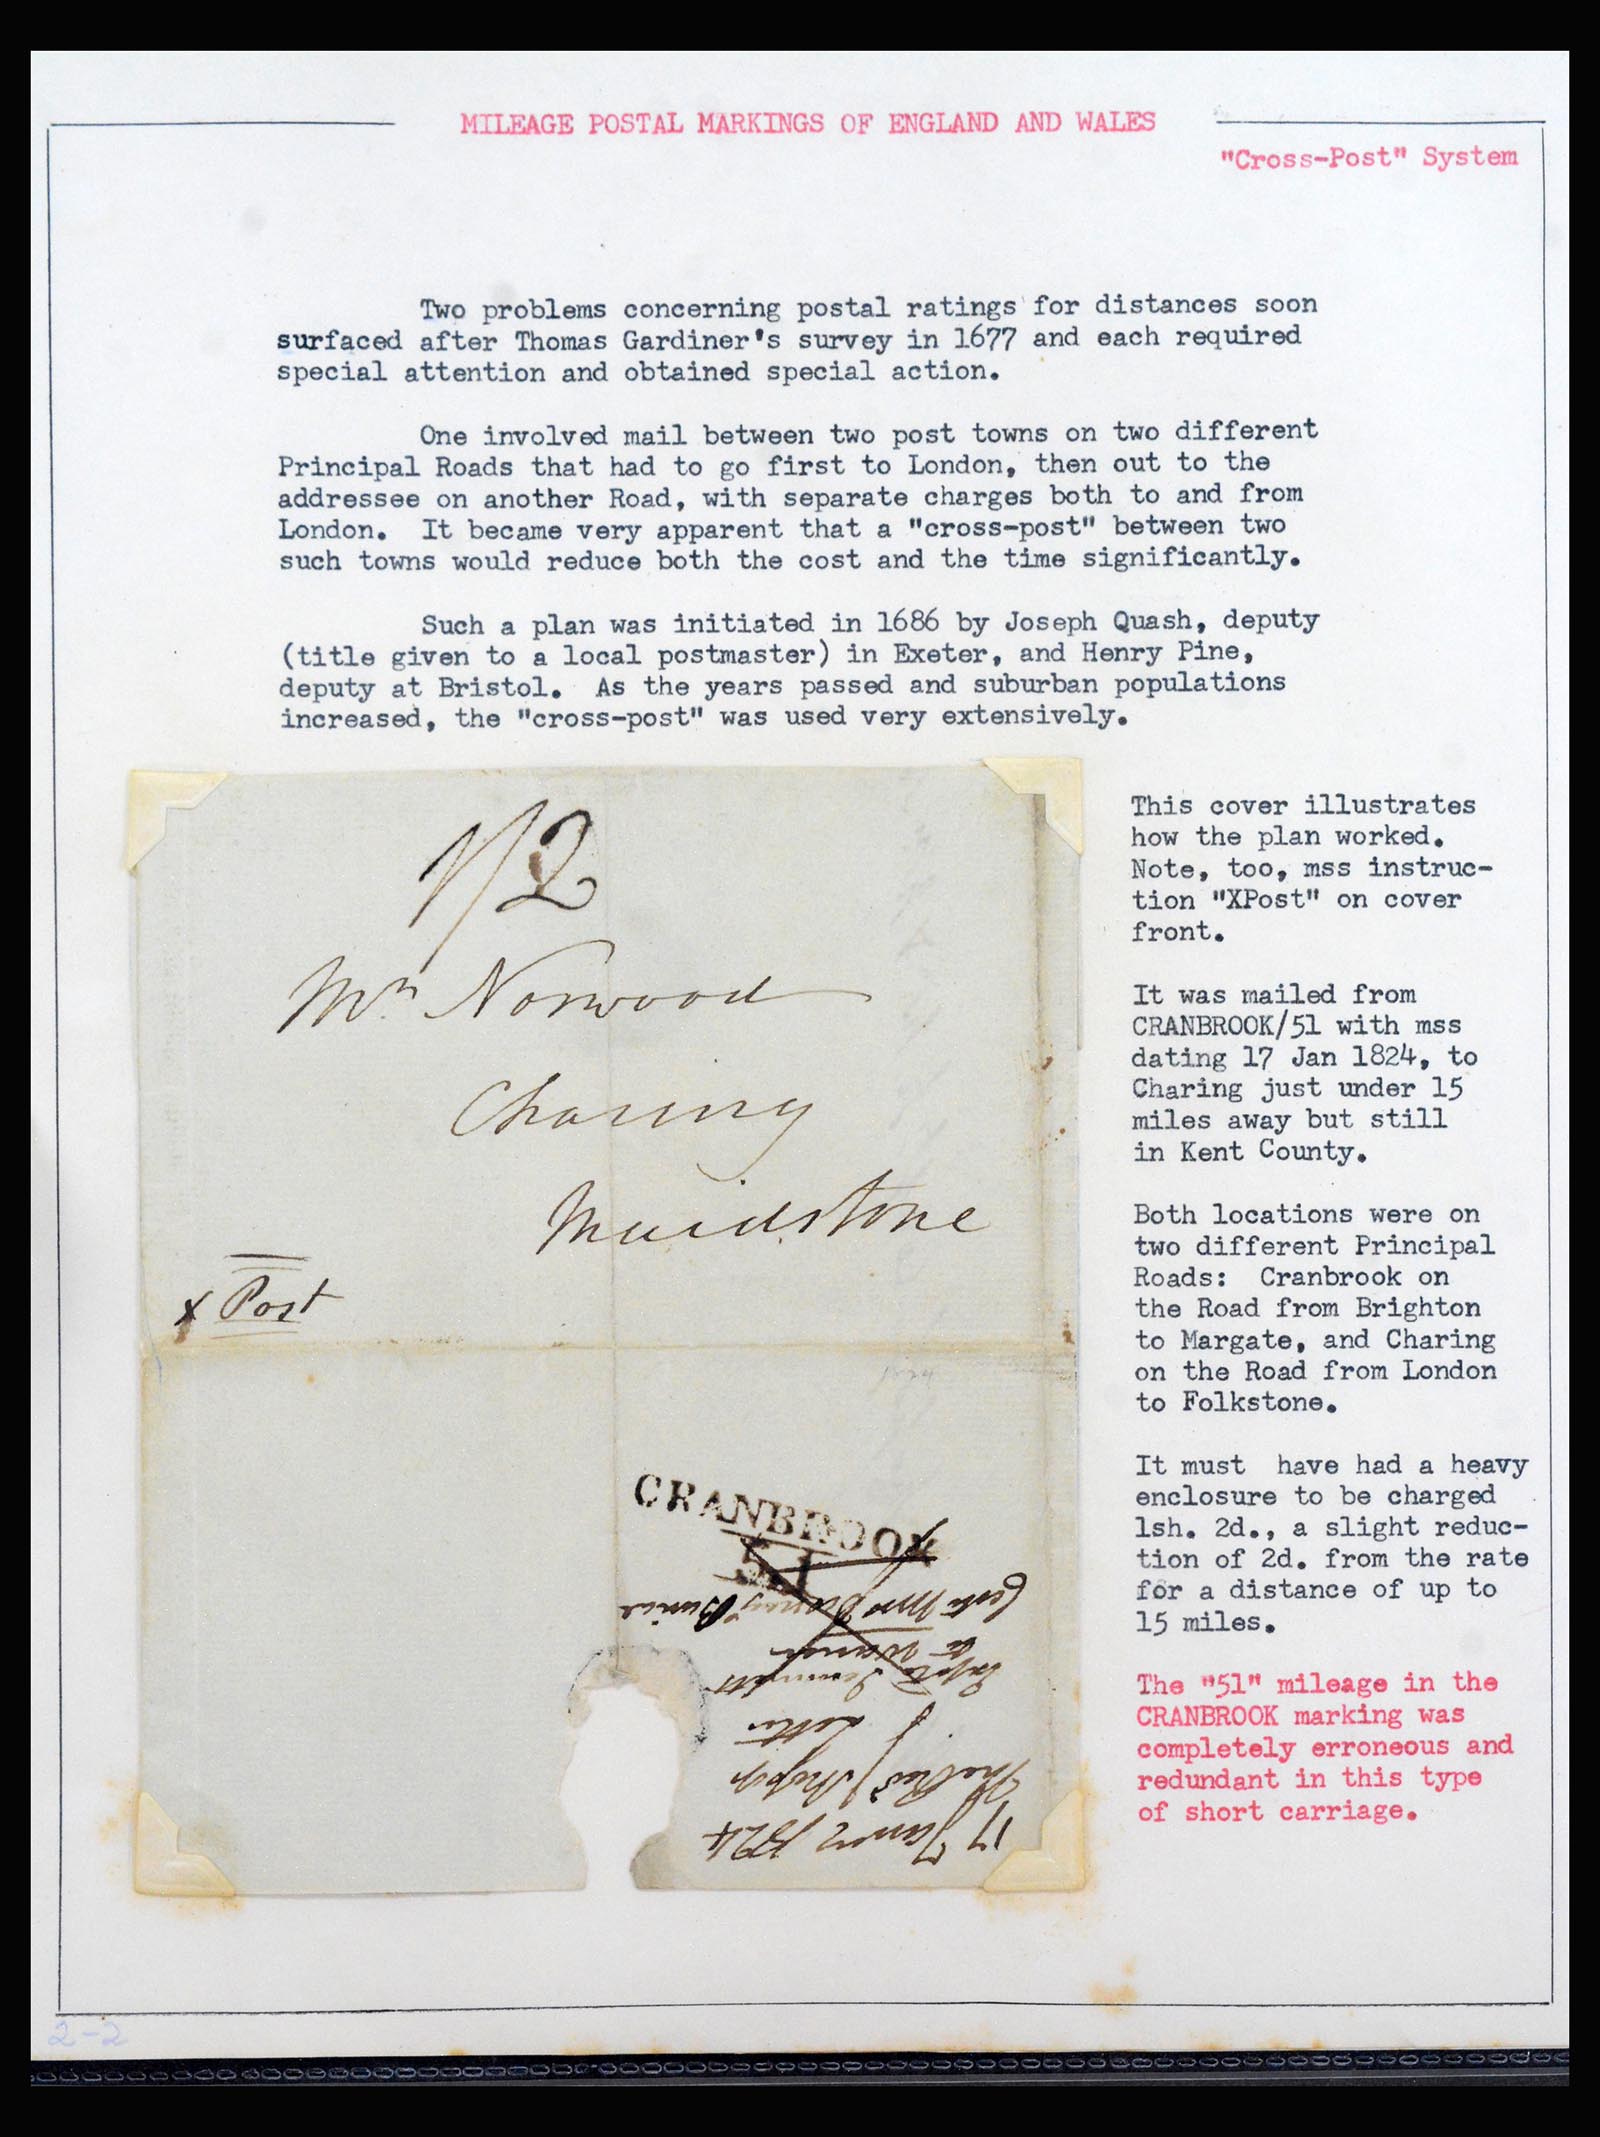 MILEAGE POSTAL MARKINGS OF ENGLAND AND WALES
"Cross-Post" System
Two problems concerning postal ratings for distances soon
surfaced after Thomas Gardiner's survey in 1677 and each required
special attention and obtained special action.
One involved mail between two post towns on two different
Principal Roads that had to go first to London, then out to the
addressee on another Road, with separate charges both to and from
London. It became very apparent that a "cross-post" between two
such towns would reduce both the cost and the time significantly.
Such a plan was initiated in 1686 by Joseph Quash, deputy
(title given to a local postmaster) in Exeter, and Henry Pine,
deputy at Bristol. As the years passed and suburban populations
increased, the "cross-post" was used very extensively.
1/2
Mr. Norwood
Charing
Maidstone
x Post
1824
CRANBROOK
51
17 1824
Letter
This cover illustrates
how the plan worked.
Note, too, mss instruc-
tion "XPost" on cover
front.
It was mailed from
CRANBROOK/51 with mss
dating 17 Jan 1824, to
Charing just under 15
miles away but still
in Kent County.
Both locations were on
two different Principal
Roads: Cranbrook on
the Road from Brighton
to Margate, and Charing
on the Road from London
to Folkstone.
It must have had a heavy
enclosure to be charged
1sh. 2d., a slight reduc-
tion of 2d. from the rate
for a distance of up to
15 miles.
The "51" mileage in the
CRANBROOK marking was
completely erroneous and
redundant in this type
of short carriage.
2-2